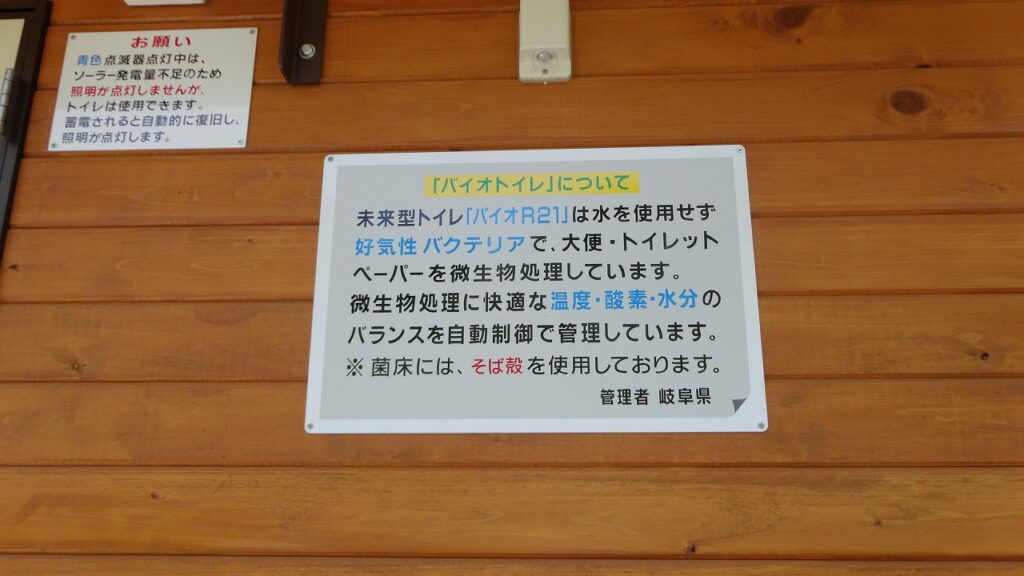 お願い
青色点滅器点灯中は、
ソーラー発電量不足のため
照明が点灯しませんが、
トイレは使用できます。
蓄電されると自動的に復旧し、
照明が点灯します。
「バイオトイレ」について
未来型トイレ「バイオR21」は水を使用せず
好気性バクテリアで、大便・トイレット
ペーパーを微生物処理しています。
微生物処理に快適な温度・酸素・水分の
バランスを自動制御で管理しています。
※菌床には、そば殻を使用しております。
管理者 岐阜県